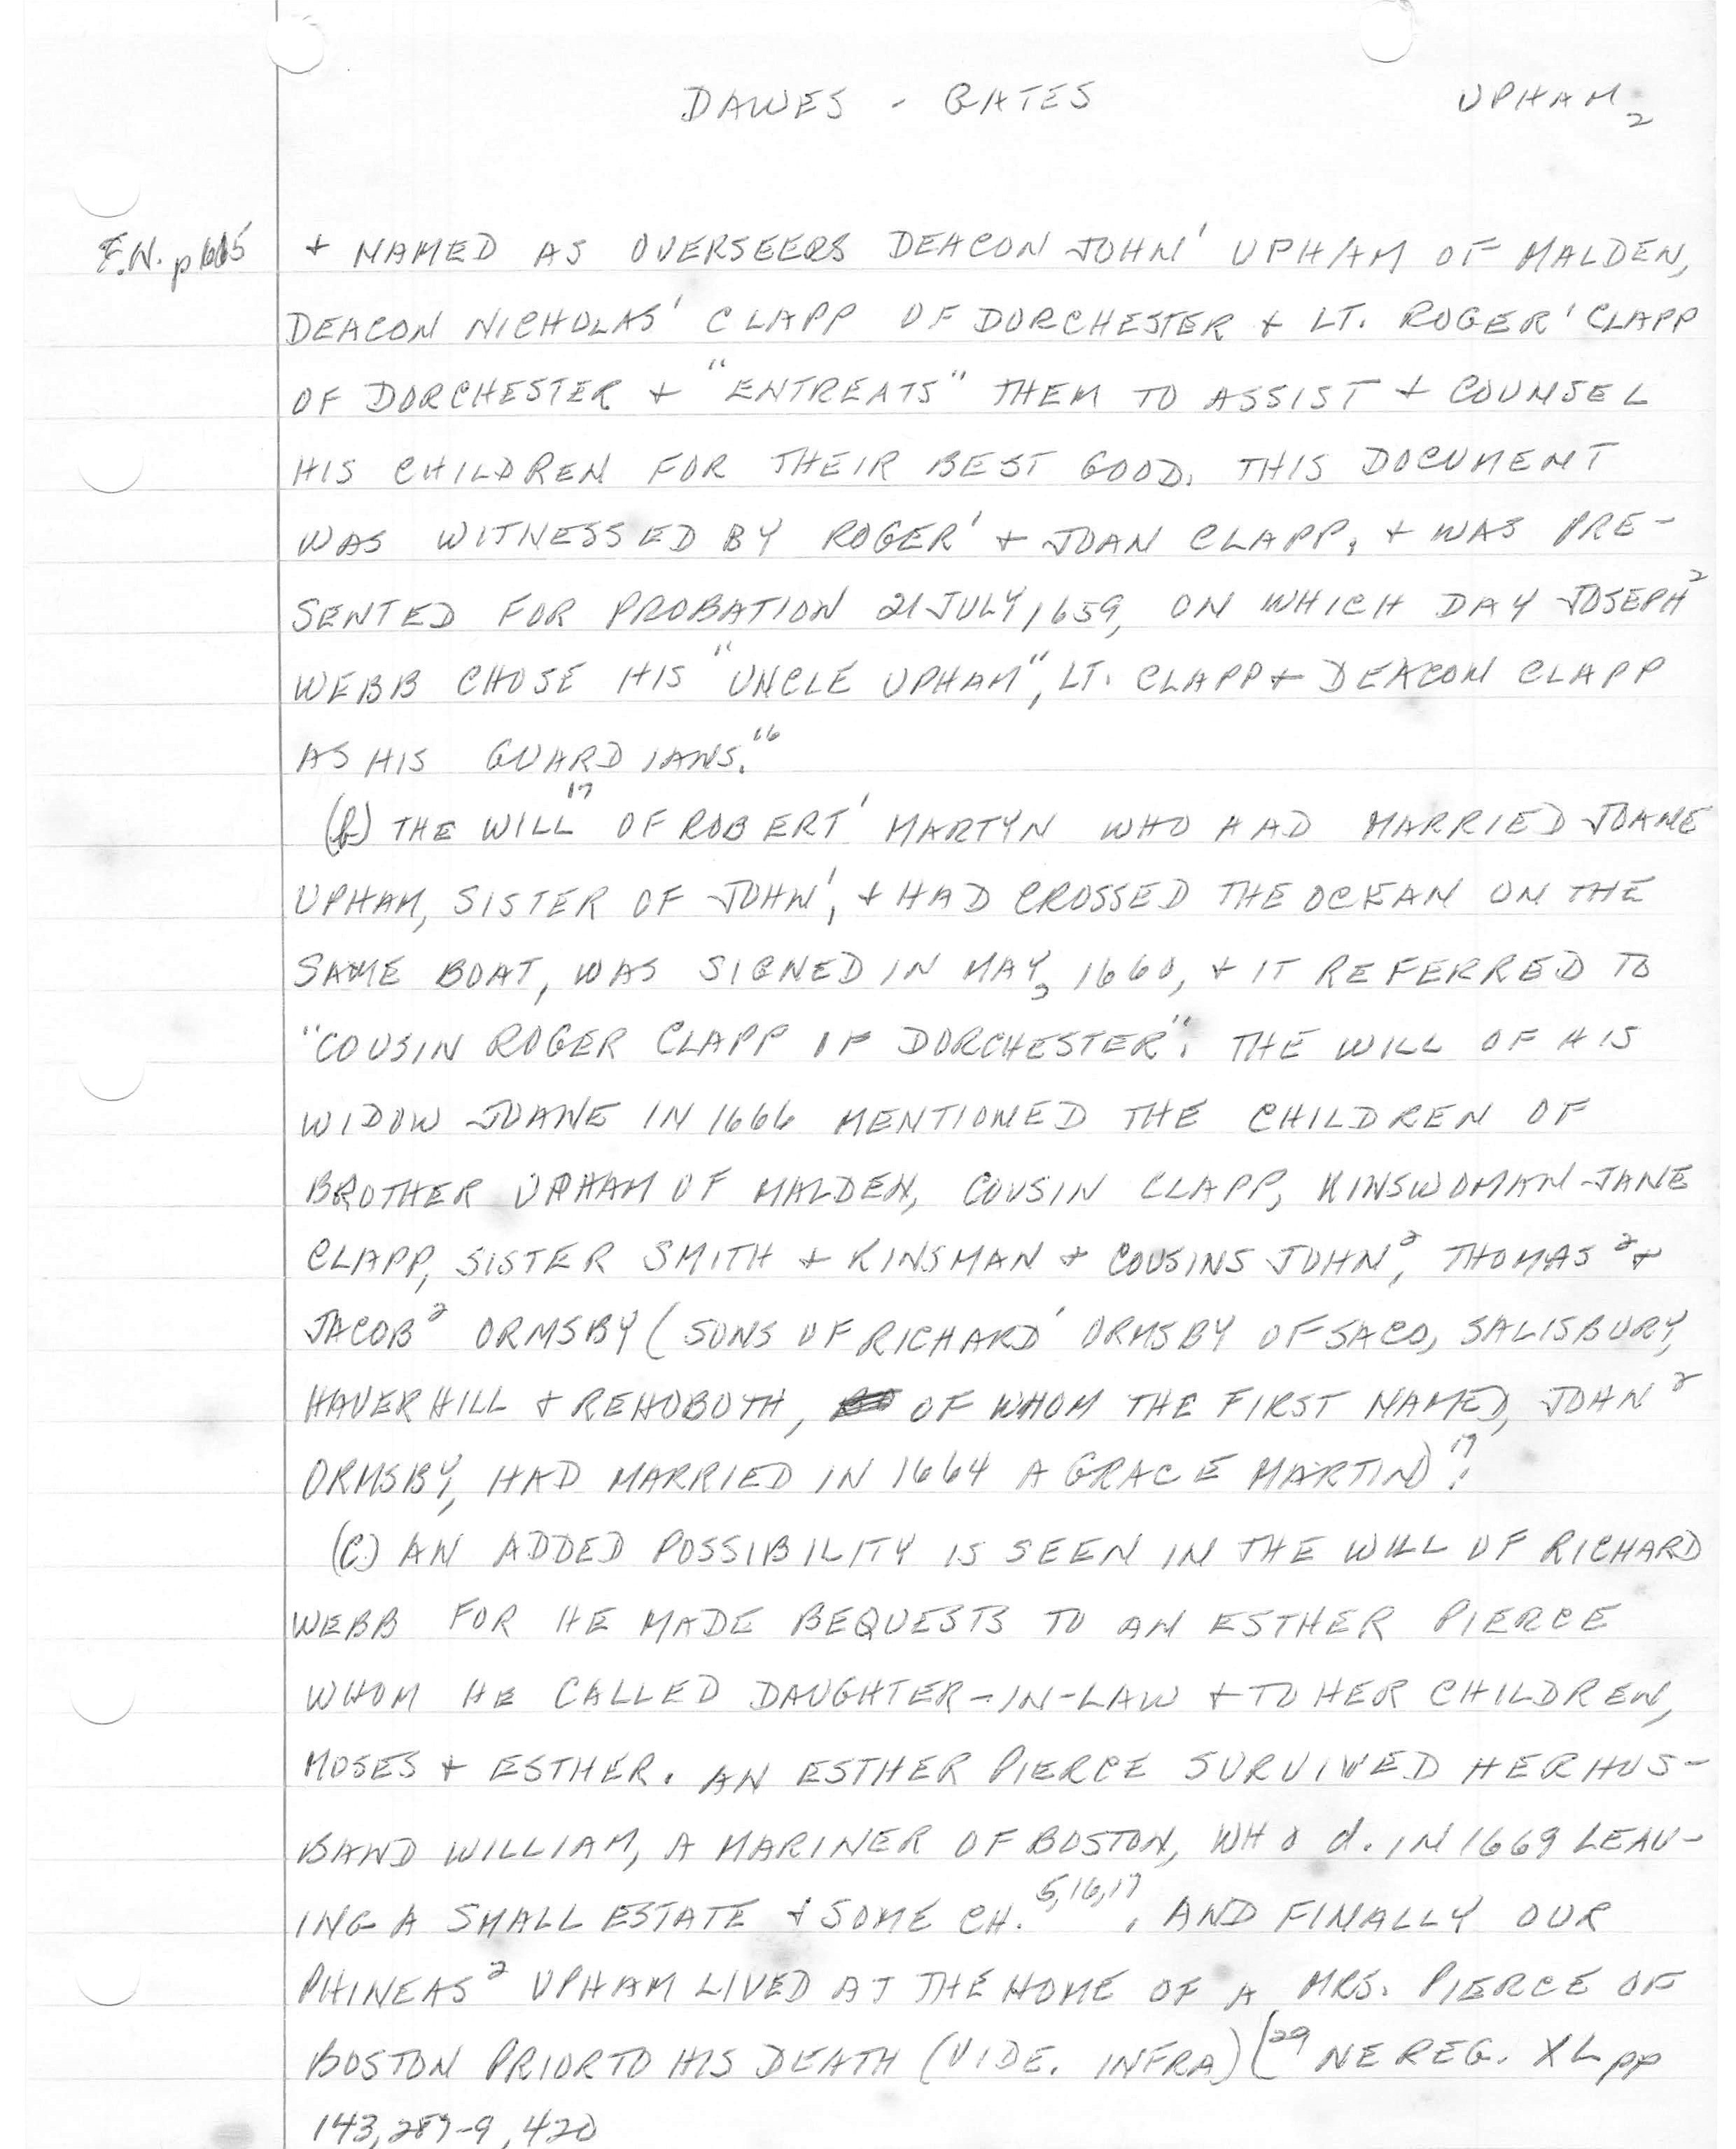 DAWES - GATES UPHAM 2
F.W. p 615 + NAMED AS OVERSEERS DEACON JOHN¹ UPHAM OF MALDEN,
DEACON NICHOLAS¹ CLAPP OF DORCHESTER + LT. ROGER¹ CLAPP
OF DORCHESTER + "ENTREATS" THEM TO ASSIST + COUNSEL
HIS CHILDREN FOR THEIR BEST GOOD. THIS DOCUMENT
WAS WITNESSED BY ROGER¹ + JOAN CLAPP, + WAS PRE-
SENTED FOR PROBATION 21 JULY, 1659, ON WHICH DAY JOSEPH²
WEBB CHOSE HIS "UNCLE UPHAM", LT. CLAPP + DEACON CLAPP
AS HIS GUARDIANS.¹⁶
(b) THE WILL¹⁷ OF ROBERT¹ MARTYN WHO HAD MARRIED JOANE
UPHAM, SISTER OF JOHN¹, + HAD CROSSED THE OCEAN ON THE
SAME BOAT, WAS SIGNED IN MAY, 1660, + IT REFERRED TO
"COUSIN ROGER CLAPP OF DORCHESTER". THE WILL OF HIS
WIDOW JOANE IN 1666 MENTIONED THE CHILDREN OF
BROTHER UPHAM OF MALDEN, COUSIN CLAPP, KINSWOMAN JANE
CLAPP, SISTER SMITH + KINSMAN + COUSINS JOHN², THOMAS² +
JACOB² ORMSBY (SONS OF RICHARD¹ ORMSBY OF SACO, SALISBURY,
HAVERHILL + REHOBOTH, OF WHOM THE FIRST NAMED, JOHN²
ORMSBY, HAD MARRIED IN 1664 A GRACE MARTIN).¹⁷
(C.) AN ADDED POSSIBILITY IS SEEN IN THE WILL OF RICHARD
WEBB FOR HE MADE BEQUESTS TO AN ESTHER PIERCE
WHOM HE CALLED DAUGHTER-IN-LAW + TO HER CHILDREN,
MOSES + ESTHER. AN ESTHER PIERCE SURVIVED HER HUS-
BAND WILLIAM, A MARINER OF BOSTON, WHO d. IN 1669 LEAV-
ING A SMALL ESTATE + SOME CH.⁵,¹⁶,¹⁷. AND FINALLY OUR
PHINEAS² UPHAM LIVED AT THE HOME OF A MRS. PIERCE OF
BOSTON PRIOR TO HIS DEATH (VIDE. INFRA) (²⁹ NE REG. XL pp
143, 287-9, 420